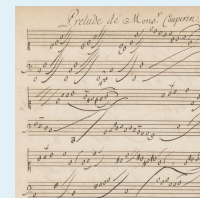 Prelude de Monsr. Couperin